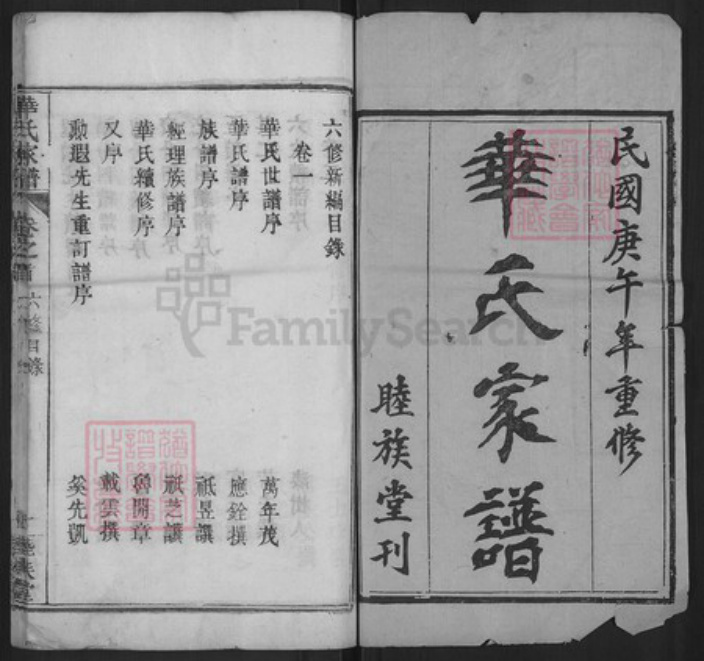 民國庚午年重修
華氏家譜
睦族堂刊
六修新編目錄
卷一
華氏世譜序 萬年茂
華氏譜序 應銓撰
族譜序 祇昱譔
經理族譜序 祇芝譔
華氏續修序 魯開章
又序 戴雲撰
勳遐先生重訂譜序 奚先凱
華氏家譜 卷之首 六修目錄
FamilySearch